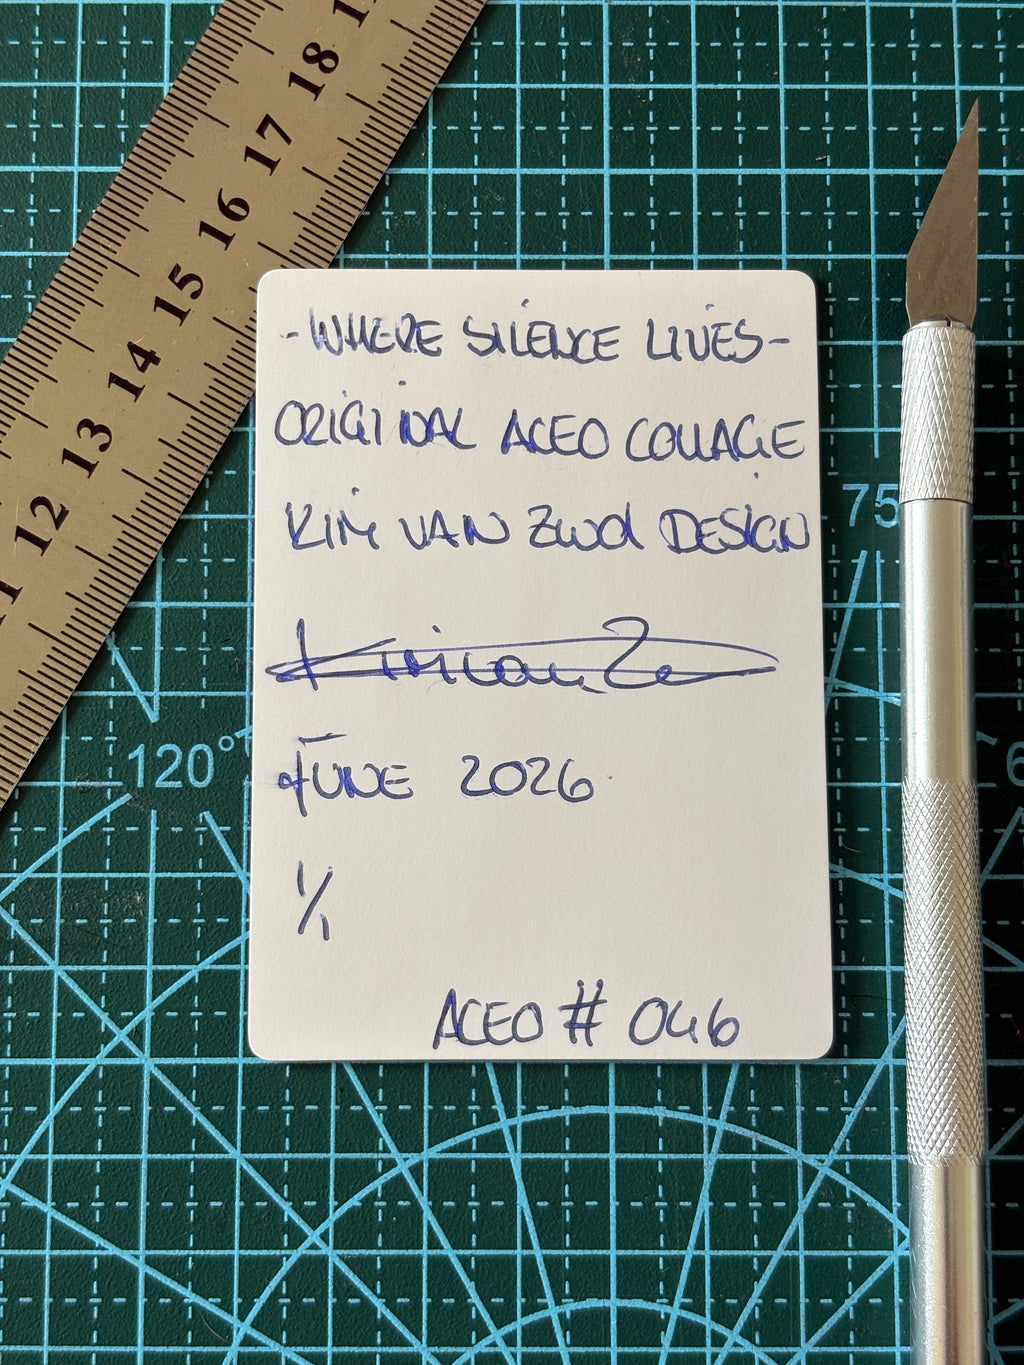 18
17
16
15
14
13
12
11
- WHERE SILENCE LIVES -
ORIGINAL ACEO COLLAGE
KIM VAN ZWOL DESIGN
75
120°
JUNE 2026
1/1
ACEO # 046